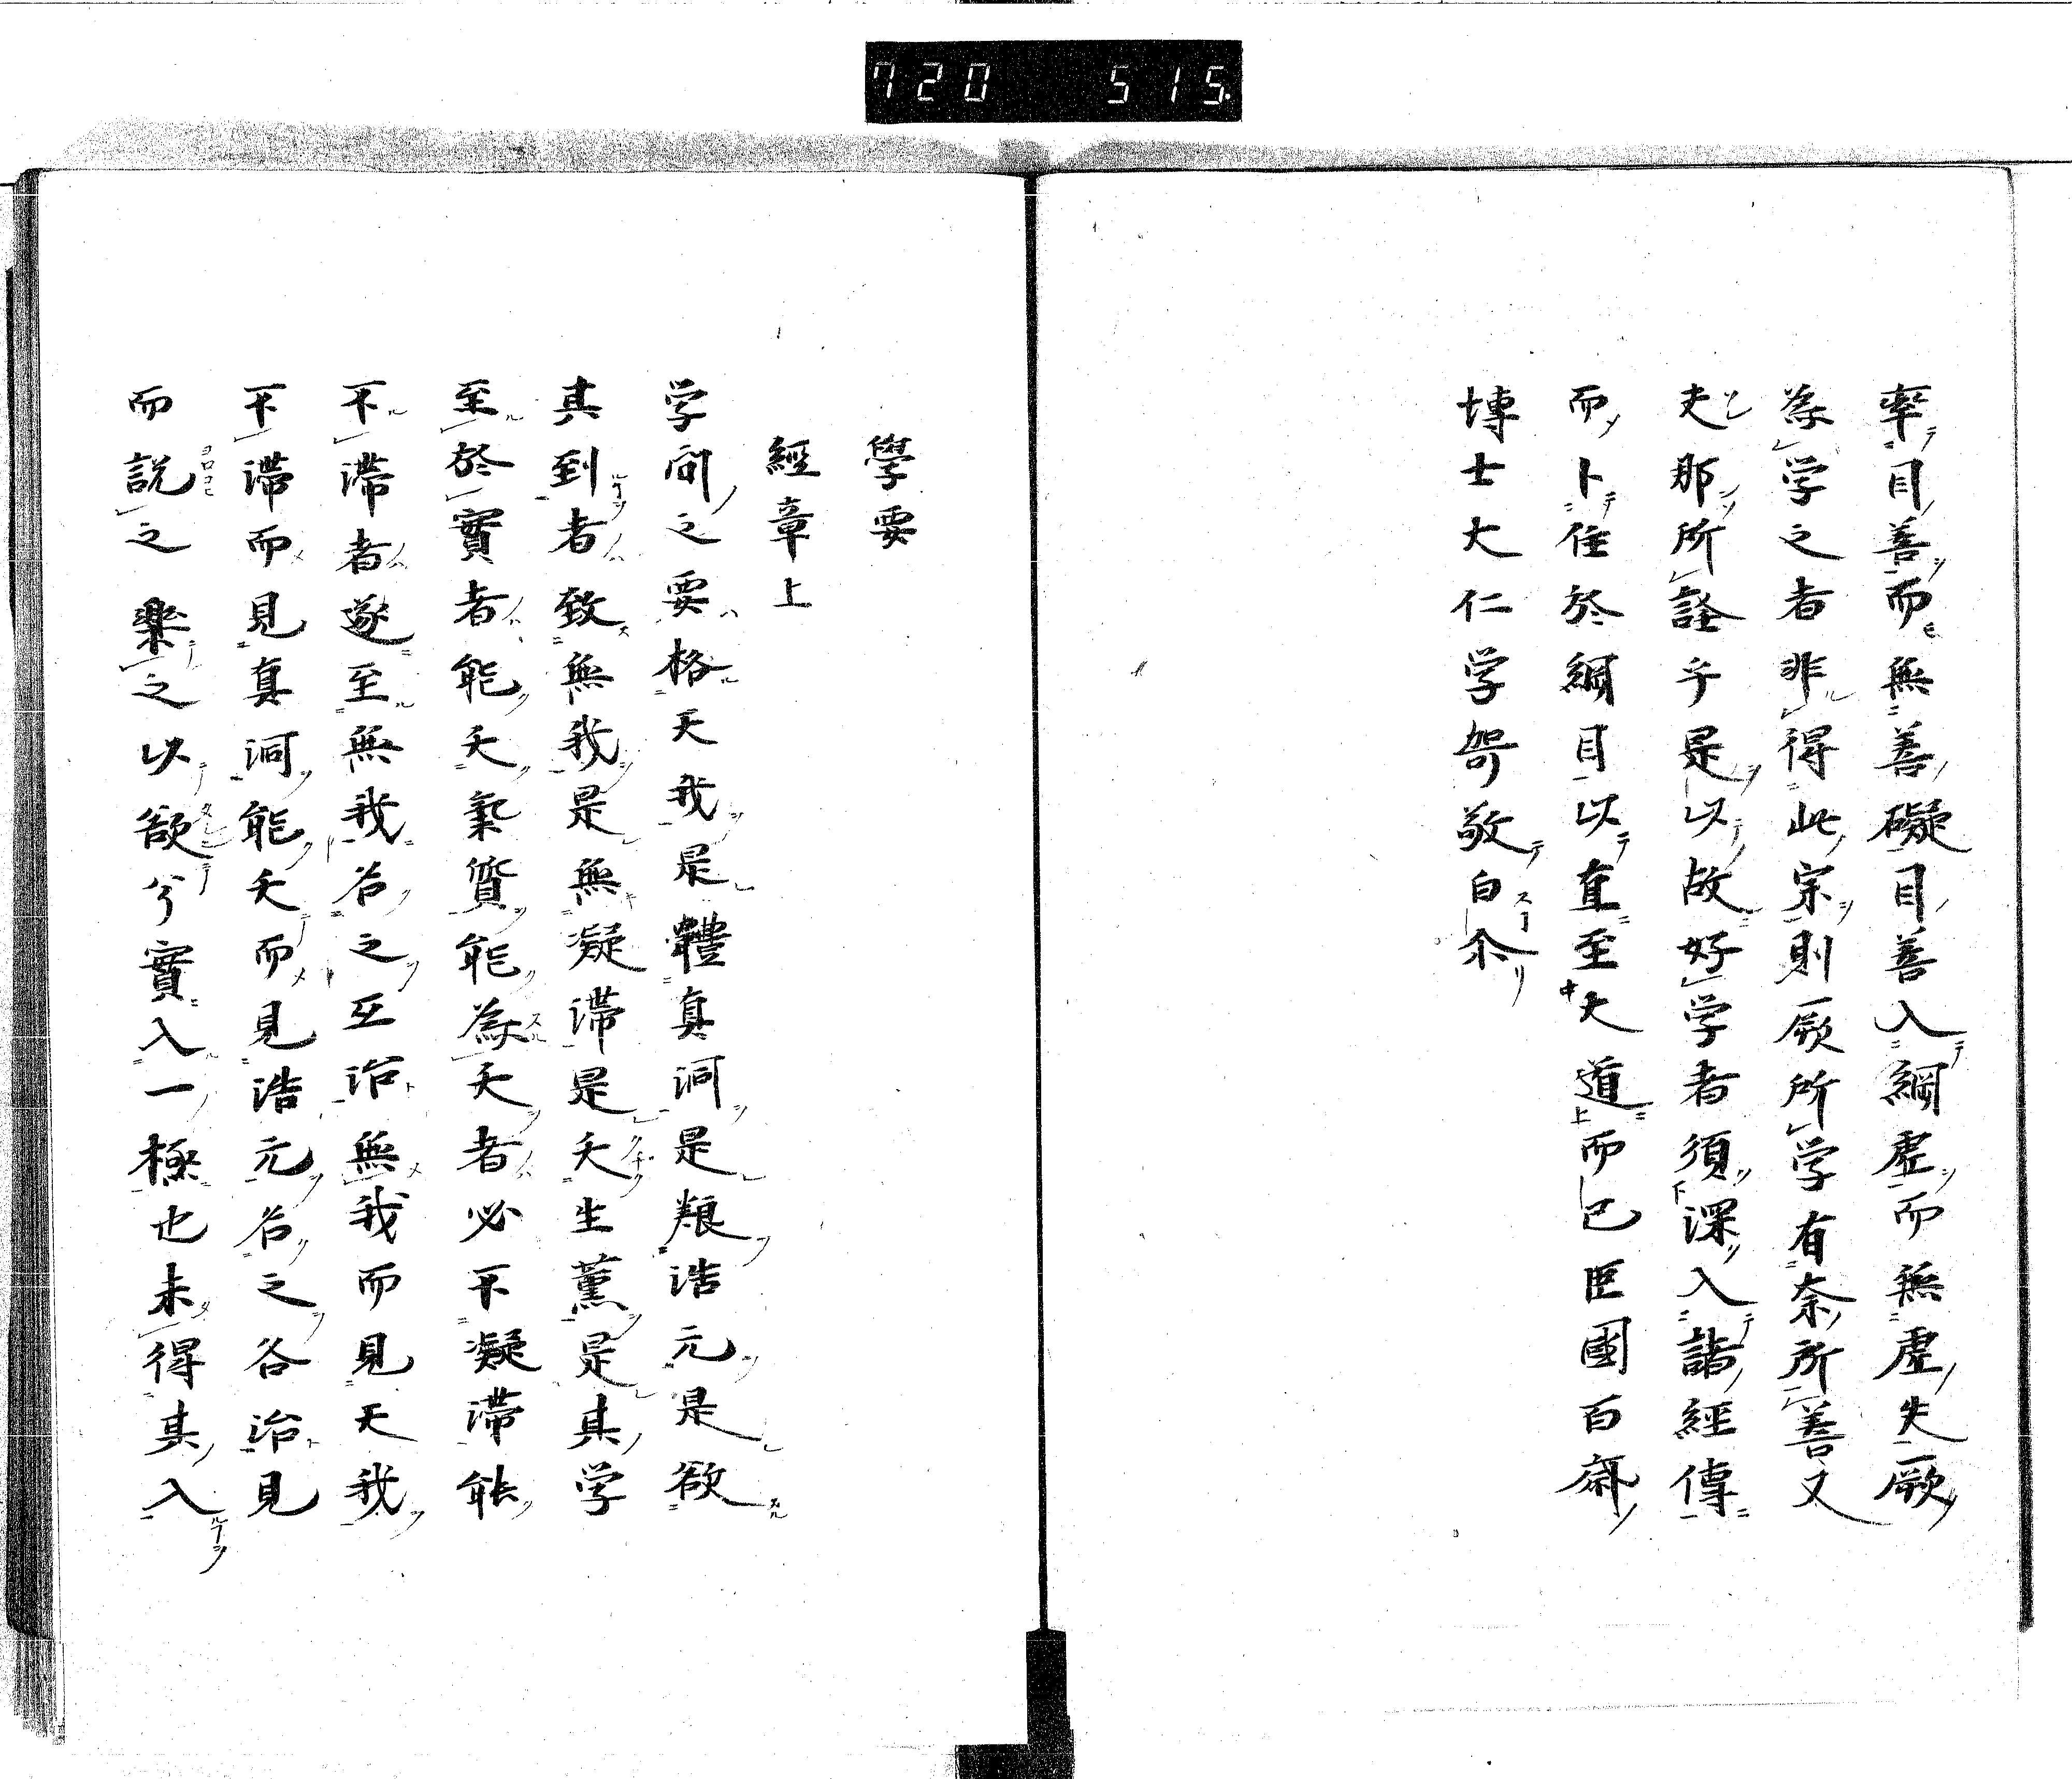 720 515
率目善而無善礙目善入綱虛而無虛失厥
為学之者非得此宗則厥所学有奈所善又
夫那所詮乎是以故好学者須深入諸經傳
而卜住於綱目以直至大道而已臣國百齋
博士大仁学哿敬白尒
學要
經章上
学問之要格天我是體真洞是粮浩元是欲
其到者致無我是無凝滯是夭生薰是其学
至於實者能夭氣質能為夭者必不凝滯能
不滯者遂至無我治之互治無我而見天我
不滯而見真洞能夭而見浩元治之各治見
而説之樂之以欲兮實入一極也未得其入